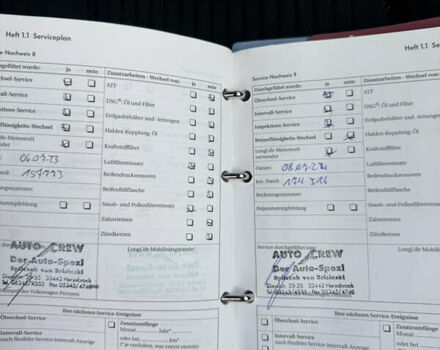 Heft 1.1 Serviceplan
ce-Nachweis 8
geführt wurde: ja nein
Zusatzarbeiten - Wechsel von:
chsel-Service
ATF
rvall-Service
DSG®: Öl und Filter
ktions-Service
Erdgasbehälter und -leitungen
lüssigkeits-Wechsel
Haldex-Kupplung: Öl
Life-Motorenöl
Kraftstofffilter
06.09.23
Luftfiltereinsatz
151773
Reifendruckensoren
Reifenfüllflasche
raturempfehlung
Staub- und Pollenfiltereinsatz
Zahnriemen
Zündkerzen
LongLife Mobilitätsgarantie
AUTO CREW
Der Auto-Spezi
Ihre nächsten Service-Ereignisse
Ölwechsel-Service
Zusatzumfänge
Intervall-Service
Monat Jahr*
(* je nachdem, was zuerst eintritt)
Heft 1.1 Ser
Service-Nachweis 9
Durchgeführt wurde: ja nein
Zusatzarbeiten - Wechsel von:
Ölwechsel-Service
ATF
Intervall-Service
DSG®: Öl und Filter
Inspektions-Service
Erdgasbehälter und -leitungen
Bremsflüssigkeits-Wechsel
Haldex-Kupplung: Öl
LongLife-Motorenöl
verwendet
Kraftstofffilter
Datum:
Luftfiltereinsatz
km-Stand: 174 316
Reifendrucksensoren
Rechnungsnummer:
Reifenfüllflasche
Reparaturempfehlung
Staub- und Pollenfiltereinsatz
Zahnriemen
Zündkerzen
Service durchgeführt von:
LongLife Mobilitätsgarantie
AUTO CREW
Der Auto-Spezi
Ihre nächsten Service-Ereignisse
Ölwechsel-Service
Zusatzumfänge
Intervall-Service